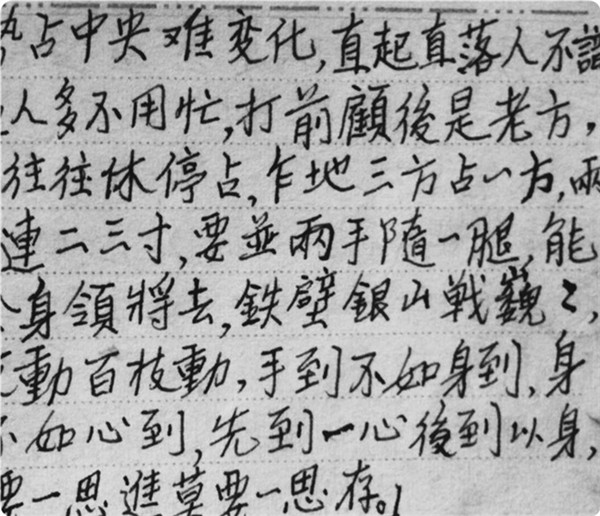 占中央难变化,直起直落人不
人多不用忙,打前顧後是老方,
往往休停占,乍地三方占一方,兩
連二三寸,要並兩手隨一腿,能
身領將去,鉄壁銀山戦巍〻,
動百枝動,手到不如身到,身
不如心到,先到一心後到以身,
要一思進莫要一思存。